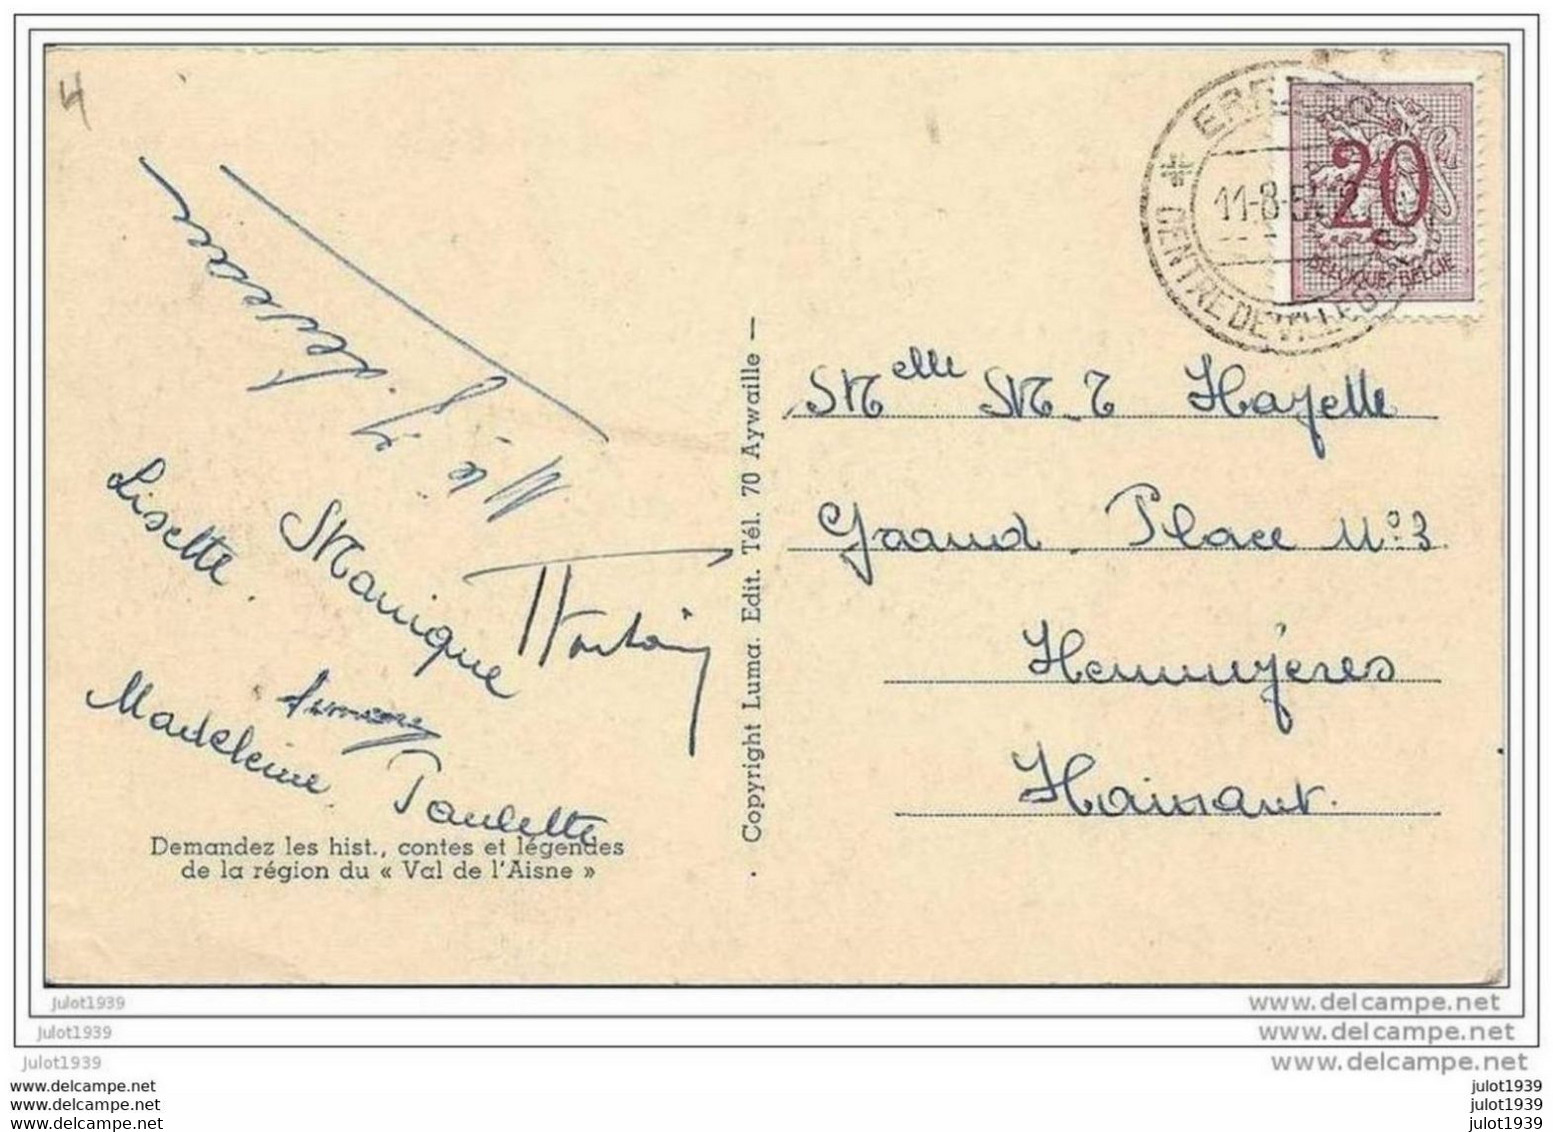 4
20
BELGIQUE-BELGIE
11-8-5
CENTRE DE VILLEG
Lisette.
Monique
Madeleine
Paulette
Demandez les hist., contes et légendes
de la région du « Val de l'Aisne »
· Copyright Luma. Edit. Tél. 70 Aywaille —
Melle M-T Hayette
Graand Place No 3
Hennuyères
Hainaut.
julot1939
www.delcampe.net
julot1939
www.delcampe.net
julot1939
www.delcampe.net
www.delcampe.net
julot1939
www.delcampe.net
julot1939
www.delcampe.net
julot1939